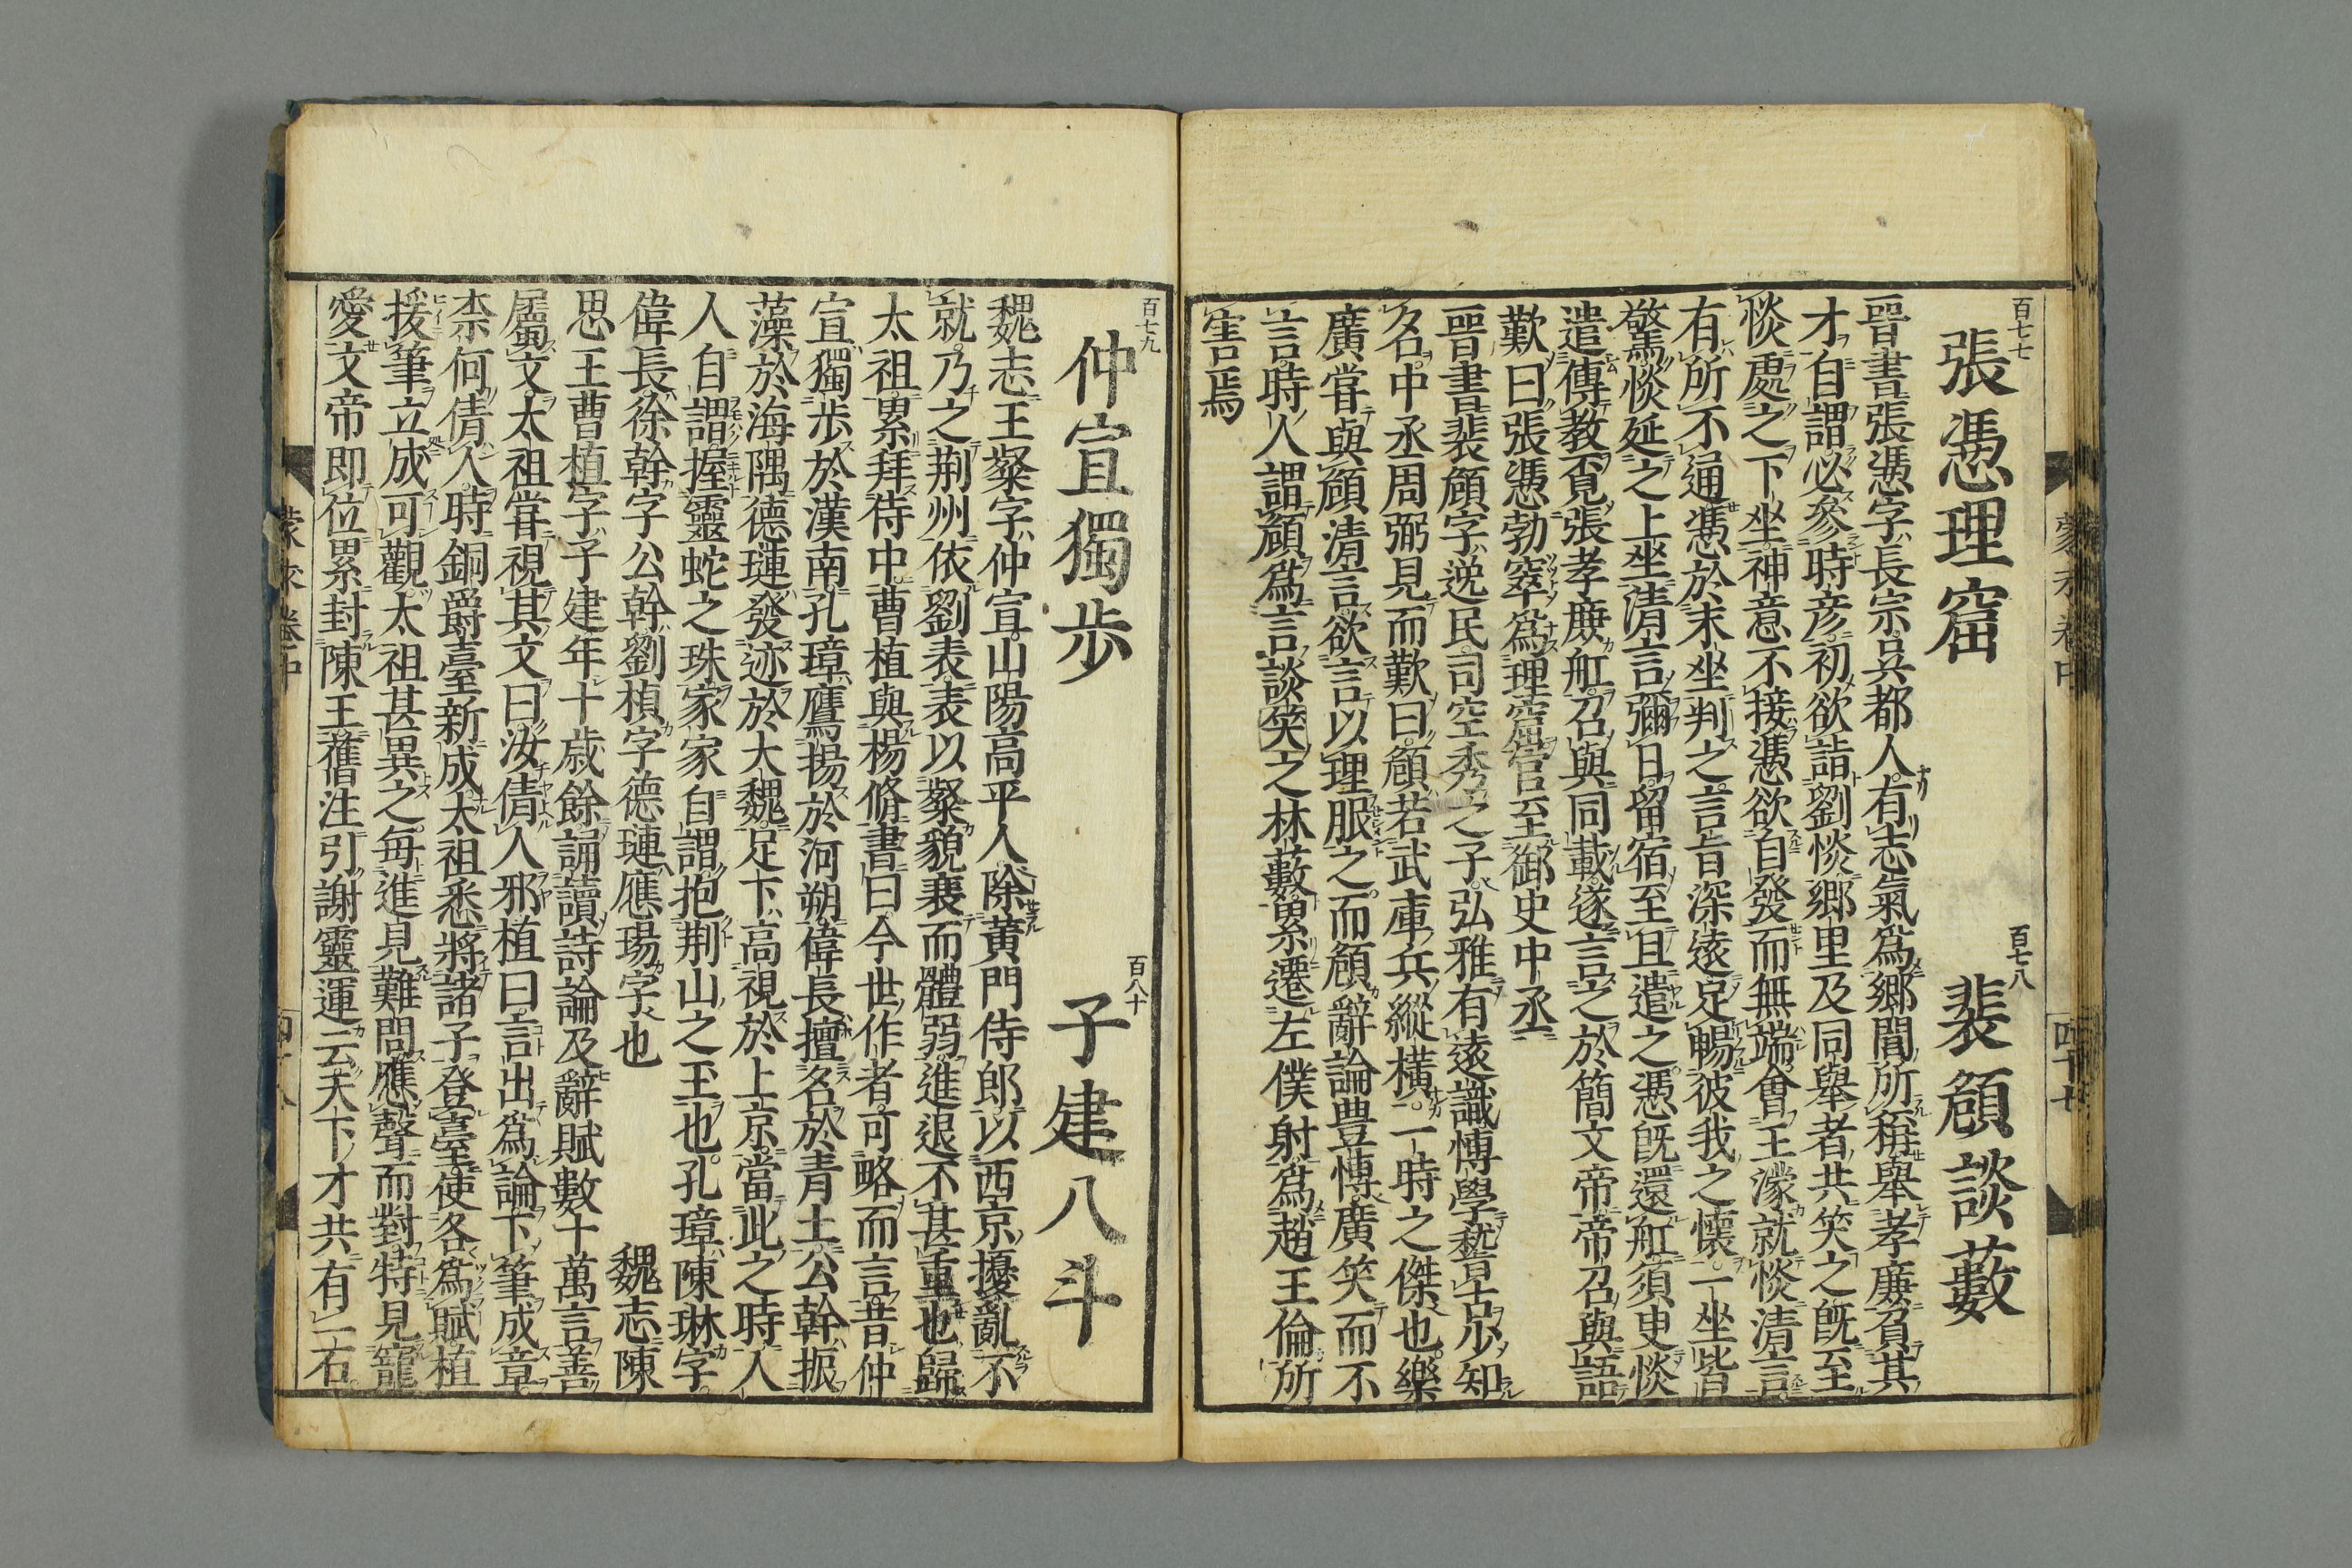 百七七
張憑理窟
百七八
裴頠談藪
晋書張憑字長宗呉都人有志氣爲鄉間所稱舉孝廉負其
才自謂必參時彦初欲詣劉惔鄉里及同舉者共笑之既至
惔處之下坐神意不接憑欲自發而無端會王濛就惔清言
有所不通憑於末坐判之言旨深遠足暢彼我之懷一坐皆
驚惔延之上坐清言彌日留宿至旦遣之憑既還舡須臾惔
遣傳教覓張孝廉舡召與同載遂言之於簡文帝帝召與語
歎曰張憑勃窣爲理窟官至御史中丞
晋書裴頠字逸民司空秀之子弘雅有遠識博學稽古少知
名中丞周弼見而歎曰頠若武庫兵縱橫一時之傑也樂
廣甞與頠清言欲言以理服之而頠辭論豊博廣笑而不
言時人謂頠爲言談笑之林藪累遷左僕射爲趙王倫所
害焉
蒙求卷中
四十七
百七九
仲宣獨步
百八十
子建八斗
魏志王粲字仲宣山陽高平人除黃門侍郎以西京擾亂不
就乃之荆州依劉表表以粲貌寢而體弱進退不甚重也歸
太祖累拜侍中曹植與楊脩書曰今世作者可略而言昔仲
宣獨步於漢南孔璋鷹揚於河朔偉長擅名於青土公幹振
藻於海隅德璉發迹於大魏足下高視於上京當此之時人
人自謂握靈蛇之珠家家自謂抱荆山之玉也孔璋陳琳字
偉長徐幹字公幹劉楨字德璉應瑒字也　魏志陳
思王曹植字子建年十歲餘誦讀詩論及辭賦數十萬言善
屬文太祖甞視其文曰汝倩人邪植曰言出爲論下筆成章
柰何倩人時銅爵臺新成太祖悉將諸子登臺使各爲賦植
援筆立成可觀太祖甚異之每進見難問應聲而對特見寵
愛文帝即位累封陳王舊注引謝靈運云天下才共有一石
蒙求卷中
四十八